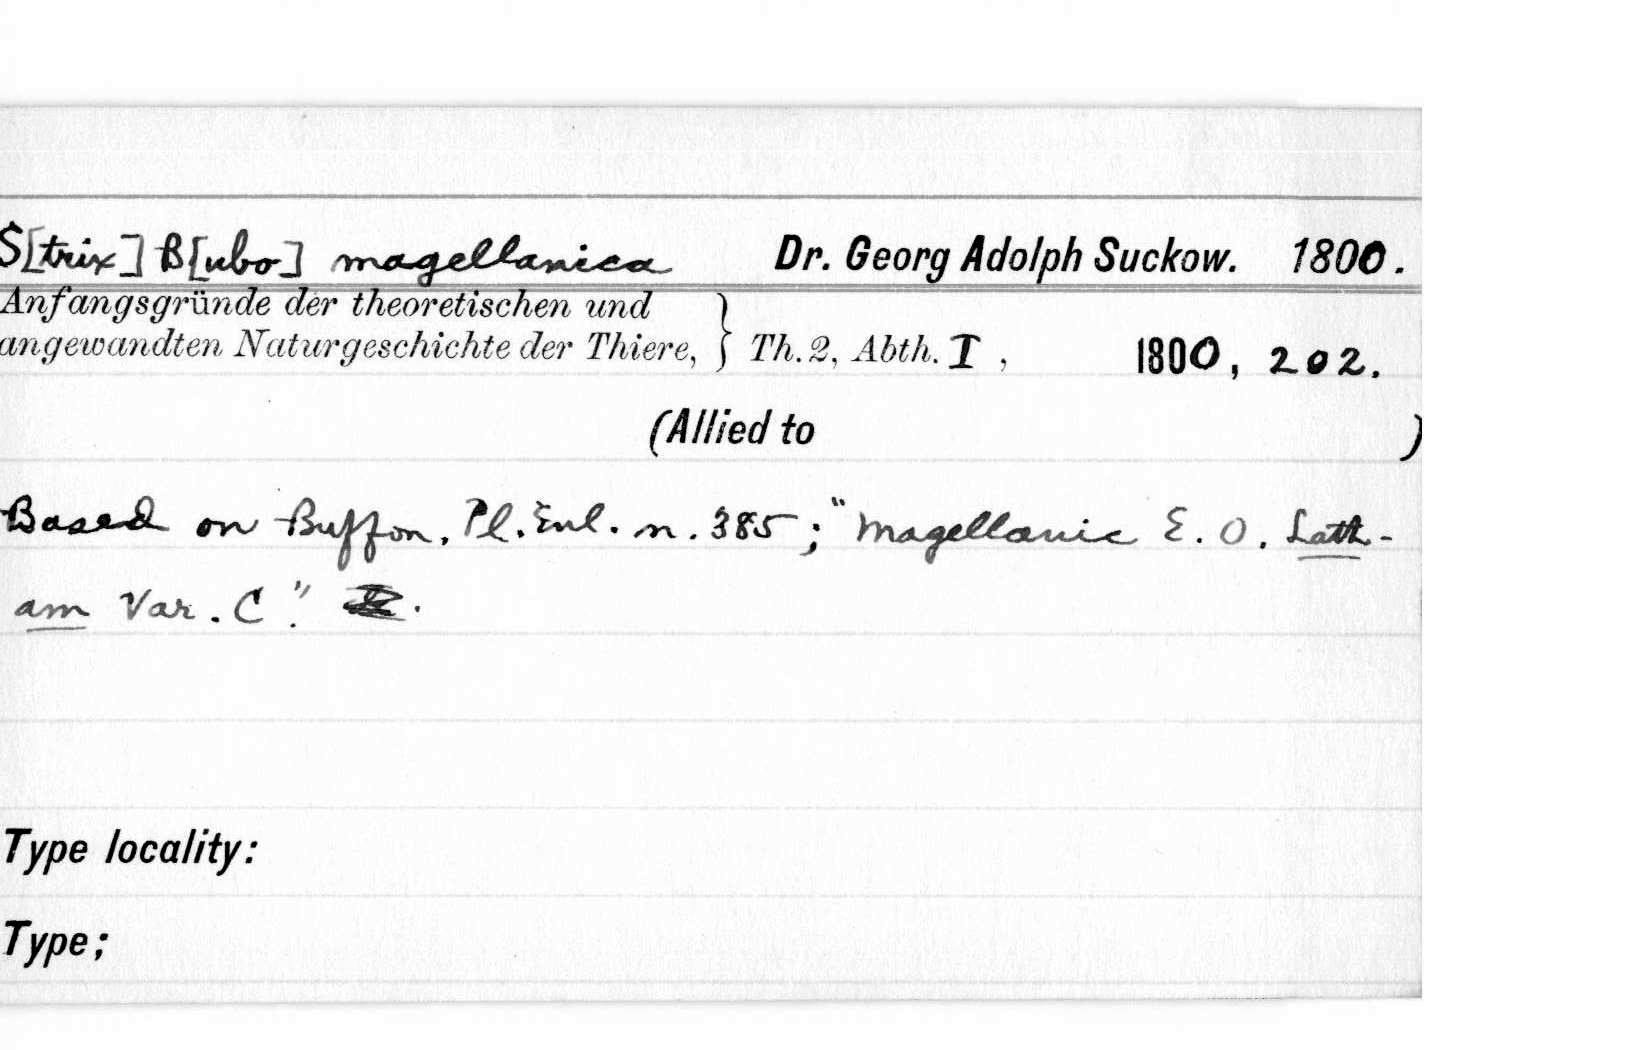 S[trix] B[ubo] magellanica Dr. Georg Adolph Suckow. 1800.
Anfangsgründe der theoretischen und
angewandten Naturgeschichte der Thiere, } Th. 2, Abth. I, 1800, 202.
(Allied to )
Based on Buffon. Pl. Enl. n. 385; "Magellanic E. O. Lath-
am Var. C."
Type locality:
Type;